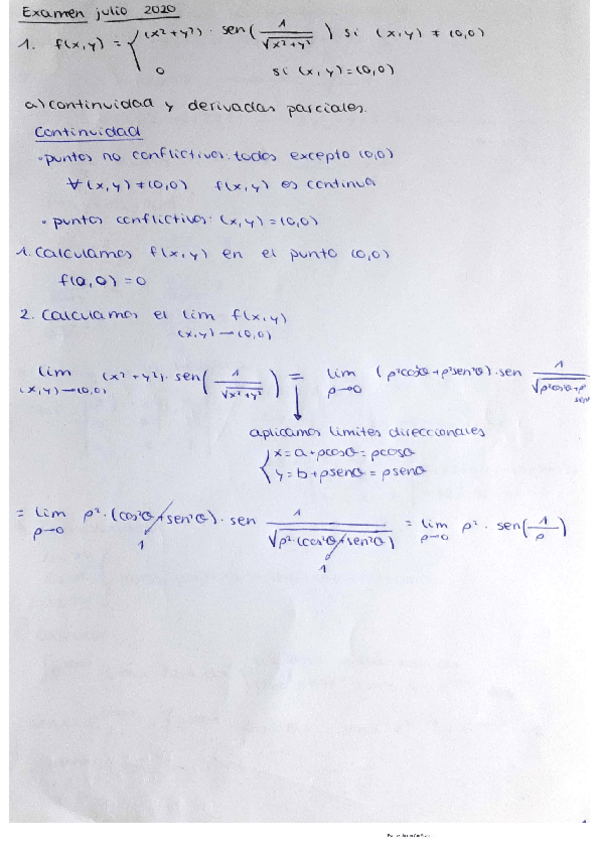 Examen julio 2020
1. f(x,y) = { (x²+y²) · sen(1/√(x²+y²)) si (x,y) ≠ (0,0)
0 si (x,y)=(0,0)
a) continuidad y derivadas parciales.
Continuidad
• puntos no conflictivos: todos excepto (0,0)
∀(x,y)≠(0,0) f(x,y) es continua
• puntos conflictivos: (x,y)=(0,0)
1. Calculamos f(x,y) en el punto (0,0)
f(0,0)=0
2. Calculamos el lim f(x,y)
(x,y)→(0,0)
lim (x,y)→(0,0) (x²+y²)·sen(1/√(x²+y²)) = lim ρ→0 (ρ²cos²θ+ρ²sen²θ)·sen 1/√(ρ²cos²θ+ρ² sen
aplicamos limites direccionales
{ x=a+ρcosθ=ρcosθ
y=b+ρsenθ=ρsenθ
= lim ρ→0 ρ²·(cos²θ+sen²θ)·sen 1/√(ρ²(cos²θ+sen²θ)) = lim ρ→0 ρ²·sen(1/ρ)
1
1